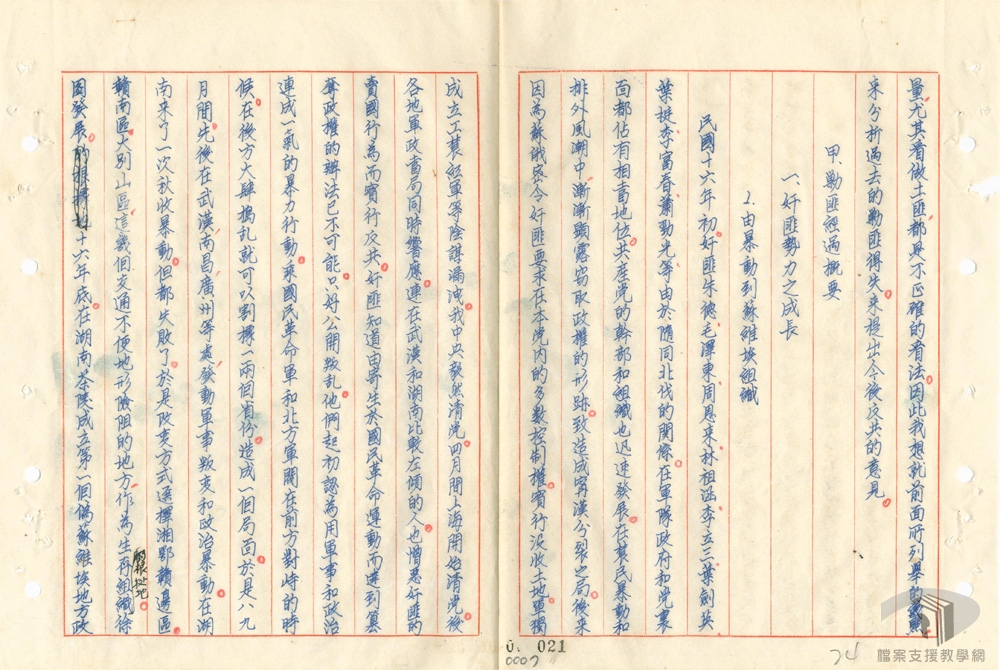 量尤其看做土匪都是不正確的看法。因此我想就前面所列舉的
來分析過去的勦匪得失來提出今後反共的意見。
甲、勦匪經過概要
一、奸匪勢力之成長
1.由暴動到蘇維埃組織
民國十六年初奸匪朱德毛澤東周恩來林祖涵李立三葉劍英
葉挺李富春蕭勁光等由於隨同北伐的關係。在軍隊政府和党裏
面都佔有相當地位。共産党的幹部和組織也迅速發展。在農民暴動和
排外風潮中漸漸顯露窃取政權的形跡。致造成寧漢分裂之局。後來
因為蘇俄密令奸匪要求在本党内的多數控制權。實行没收土地。單獨
成立工農紅軍等陰謀漏洩。我中央毅然清党。四月間上海開始清党後
各地軍政當局同時響應。連在武漢和湖南比較左傾的人也憎惡奸匪的
賣國行為而實行反共。奸匪知道由寄生於國民革命運動而達到篡
奪政權的辦法已不可能。只好公開叛乱。他們起初認為用軍事和政治
連成一氣的暴力行動。乘國民革命軍和北方軍閥在前方對峙的時
候。在後方大肆搗乱就可以割據一兩個省份。造成一個局面。於是八九
月間。先後在武漢南昌廣州等處發動軍事叛变和政治暴動。在湖
南来了一次秋收暴動。但都失敗了。於是改変方式選擇湘鄂贛邊區
贛南區大別山區這幾個交通不便地形險阻的地方。作為生存組織
的根拠地
圖發展。十六年底。在湖南茶陵成立第一個偽蘇維埃地方政
0. 021
0007
24
檔案支援教學網